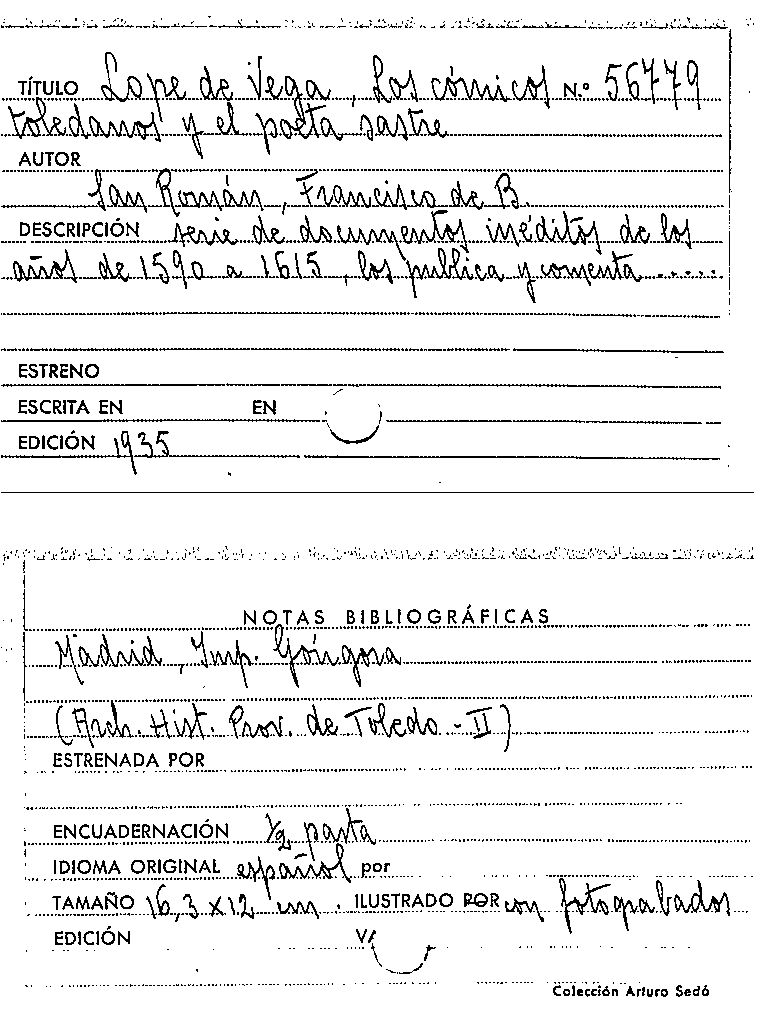 TÍTULO Lope de Vega, Los cómicos N.º 56779
toledanos y el poeta sastre
AUTOR
San Román, Francisco de B.
DESCRIPCIÓN serie de documentos inéditos de los
años de 1590 a 1615, los publica y comenta .....
ESTRENO
ESCRITA EN EN
EDICIÓN 1935
NOTAS BIBLIOGRÁFICAS
Madrid, Imp. Góngora
(Arch. Hist. Prov. de Toledo - II)
ESTRENADA POR
ENCUADERNACIÓN ½ pasta
IDIOMA ORIGINAL español por
TAMAÑO 16,3 x 12 cm. ILUSTRADO POR con fotograbados
EDICIÓN
Colección Arturo Sedó